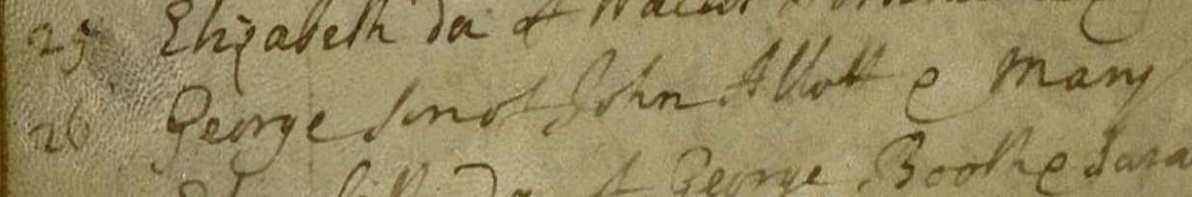 25 Elizabeth da of
26 George son of John Allott e Mary
Da of George Booth e Sara